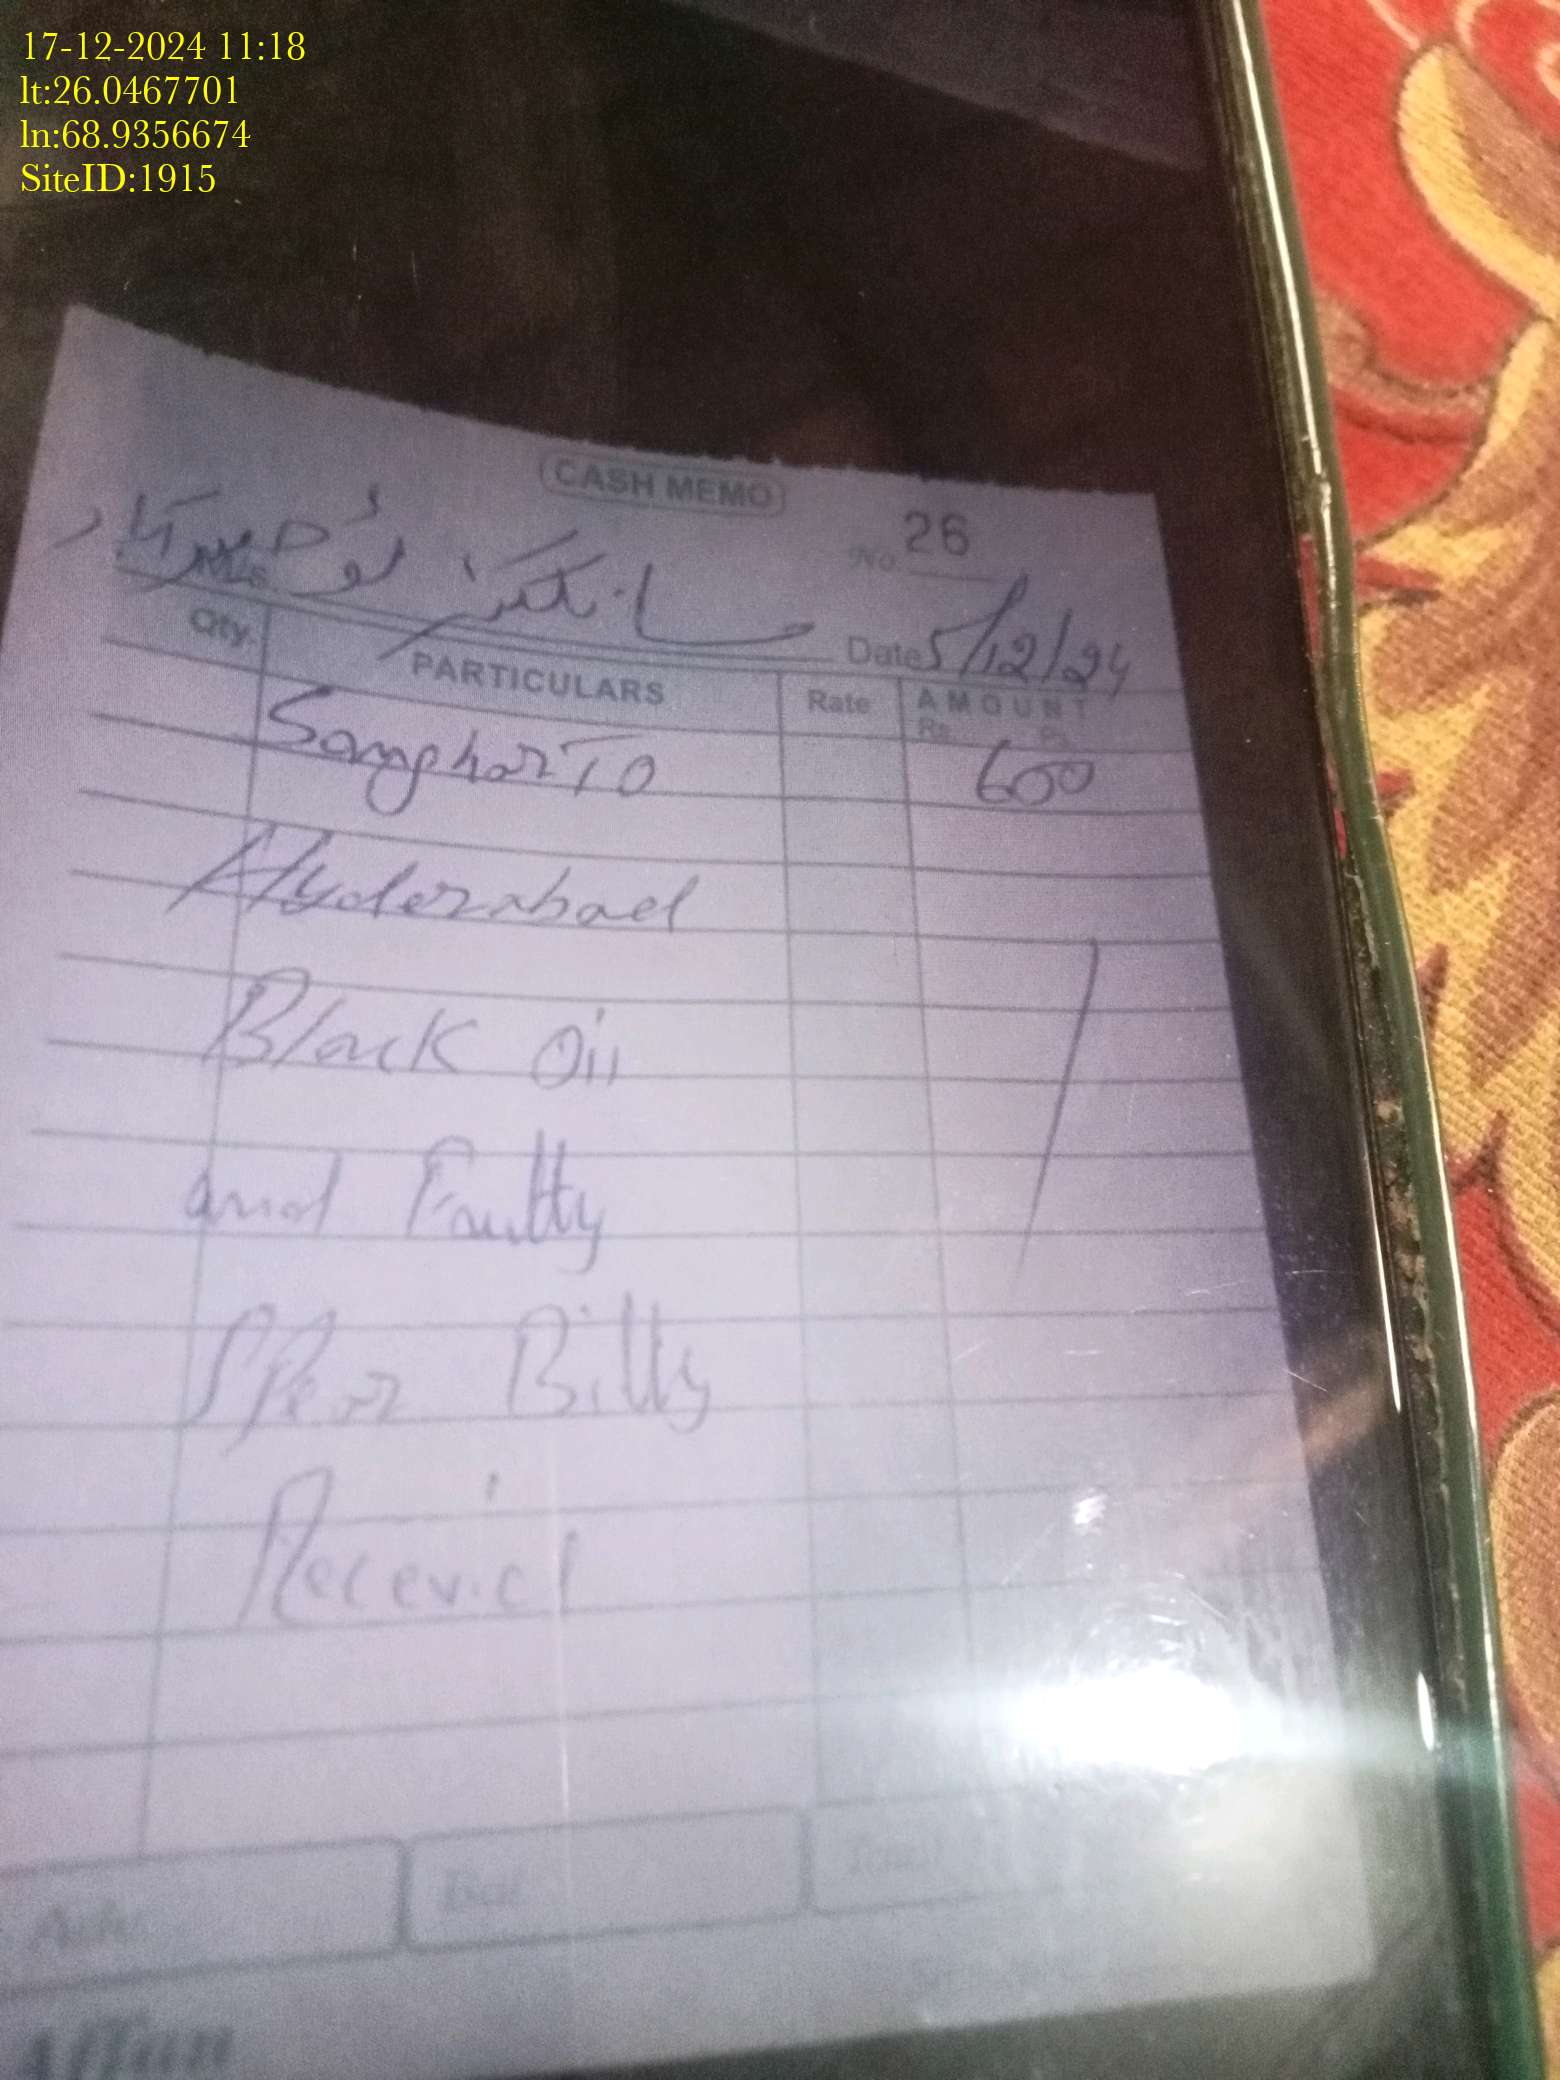 17-12-2024 11:18
lt:26.0467701
ln:68.9356674
SiteID:1915
CASH MEMO
No. 26
M/s سانگھڑ ٹو حیدرآباد
Date 5/12/24
Qty. PARTICULARS Rate AMOUNT
Rs. Ps.
Sanghar To 600
Hyderabad
Black Oil
and Faulty
SPear Billty
Recevied
Adv.
Bal.
Total
Affan